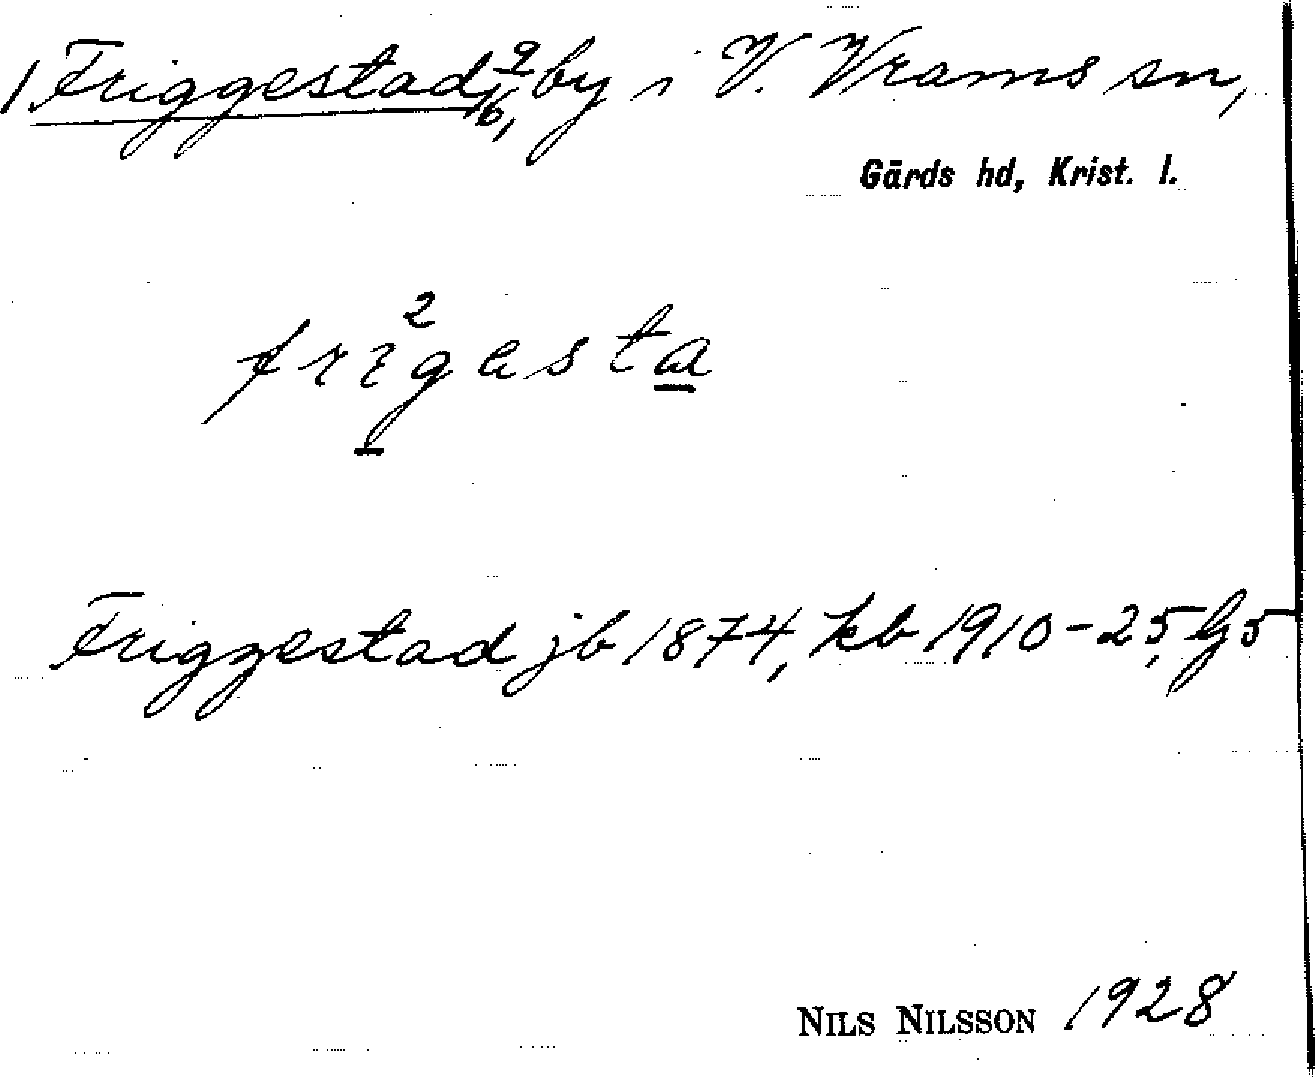 1 Friggestad, 9/16, by i V. Vrams sn,
Gärds hd, Krist. l.
2
frigesta
Friggestad jb 1874, kb 1910-25, G5
NILS NILSSON 1928